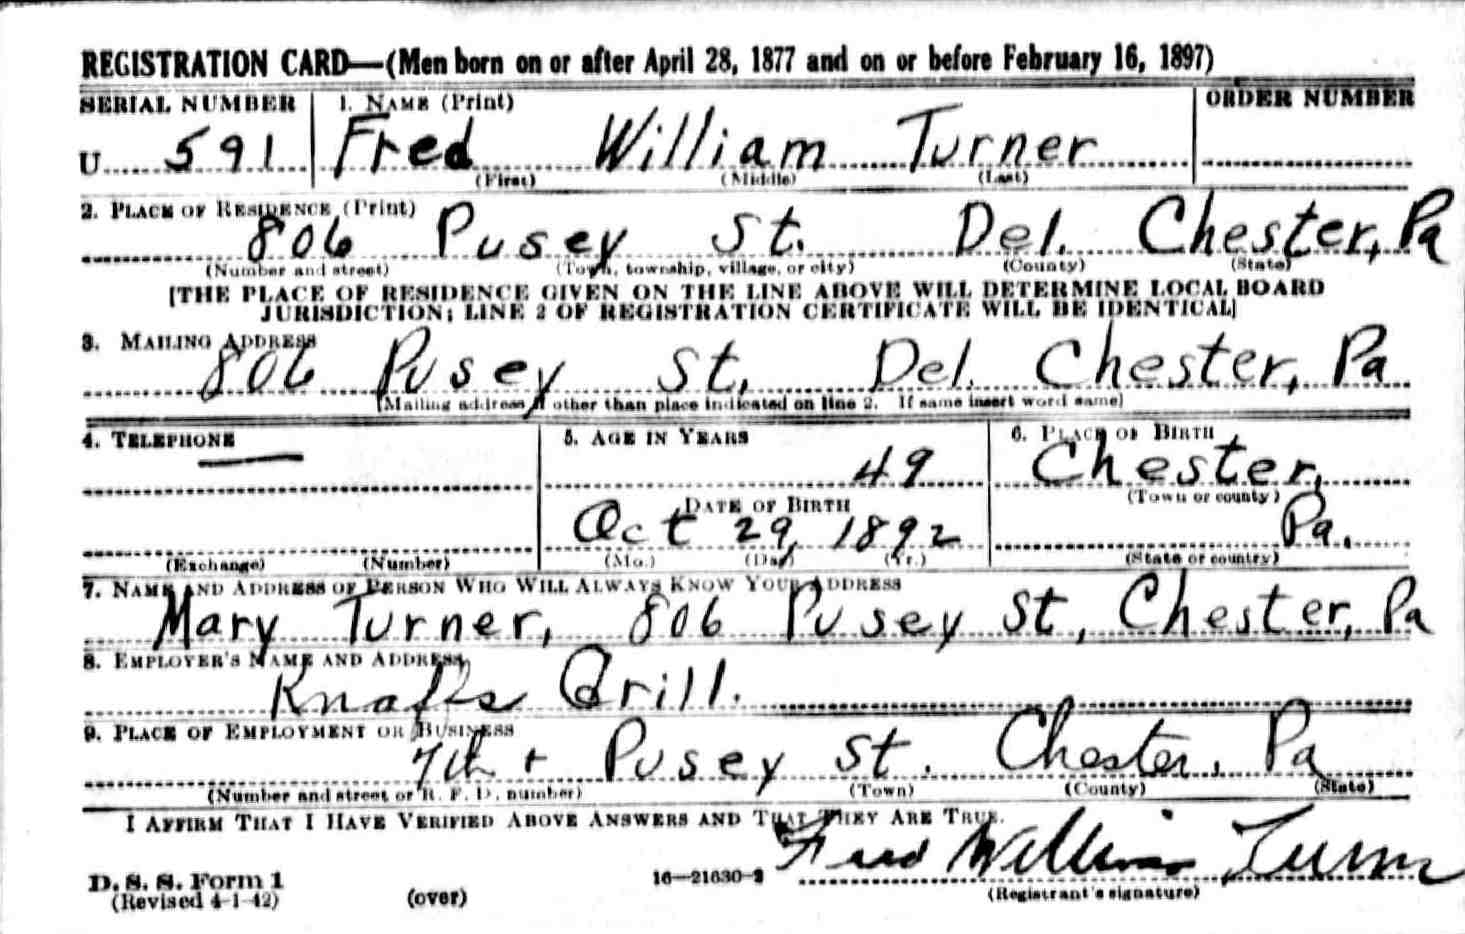 REGISTRATION CARD—(Men born on or after April 28, 1877 and on or before February 16, 1897)
SERIAL NUMBER 1. NAME (Print) ORDER NUMBER
U 591 Fred William Turner
(First) (Middle) (Last)
2. PLACE OF RESIDENCE (Print)
806 Pusey St. Del. Chester, Pa
(Number and street) (Town, township, village, or city) (County) (State)
[THE PLACE OF RESIDENCE GIVEN ON THE LINE ABOVE WILL DETERMINE LOCAL BOARD
JURISDICTION; LINE 2 OF REGISTRATION CERTIFICATE WILL BE IDENTICAL]
3. MAILING ADDRESS
806 Pusey St, Del. Chester, Pa
[Mailing address if other than place indicated on line 2. If same insert word same]
4. TELEPHONE 5. AGE IN YEARS 6. PLACE OF BIRTH
49 Chester,
DATE OF BIRTH (Town or county)
Oct 29, 1892 Pa.
(Exchange) (Number) (Mo.) (Day) (Yr.) (State or country)
7. NAME AND ADDRESS OF PERSON WHO WILL ALWAYS KNOW YOUR ADDRESS
Mary Turner, 806 Pusey St, Chester, Pa
8. EMPLOYER'S NAME AND ADDRESS
Grill.
9. PLACE OF EMPLOYMENT OR BUSINESS
7th + Pusey St. Chester, Pa
(Number and street or R. F. D. number) (Town) (County) (State)
I AFFIRM THAT I HAVE VERIFIED ABOVE ANSWERS AND THAT THEY ARE TRUE.
Fred William Turner
D. S. S. Form 1 16—21630-2 (Registrant's signature)
(Revised 4-1-42) (over)